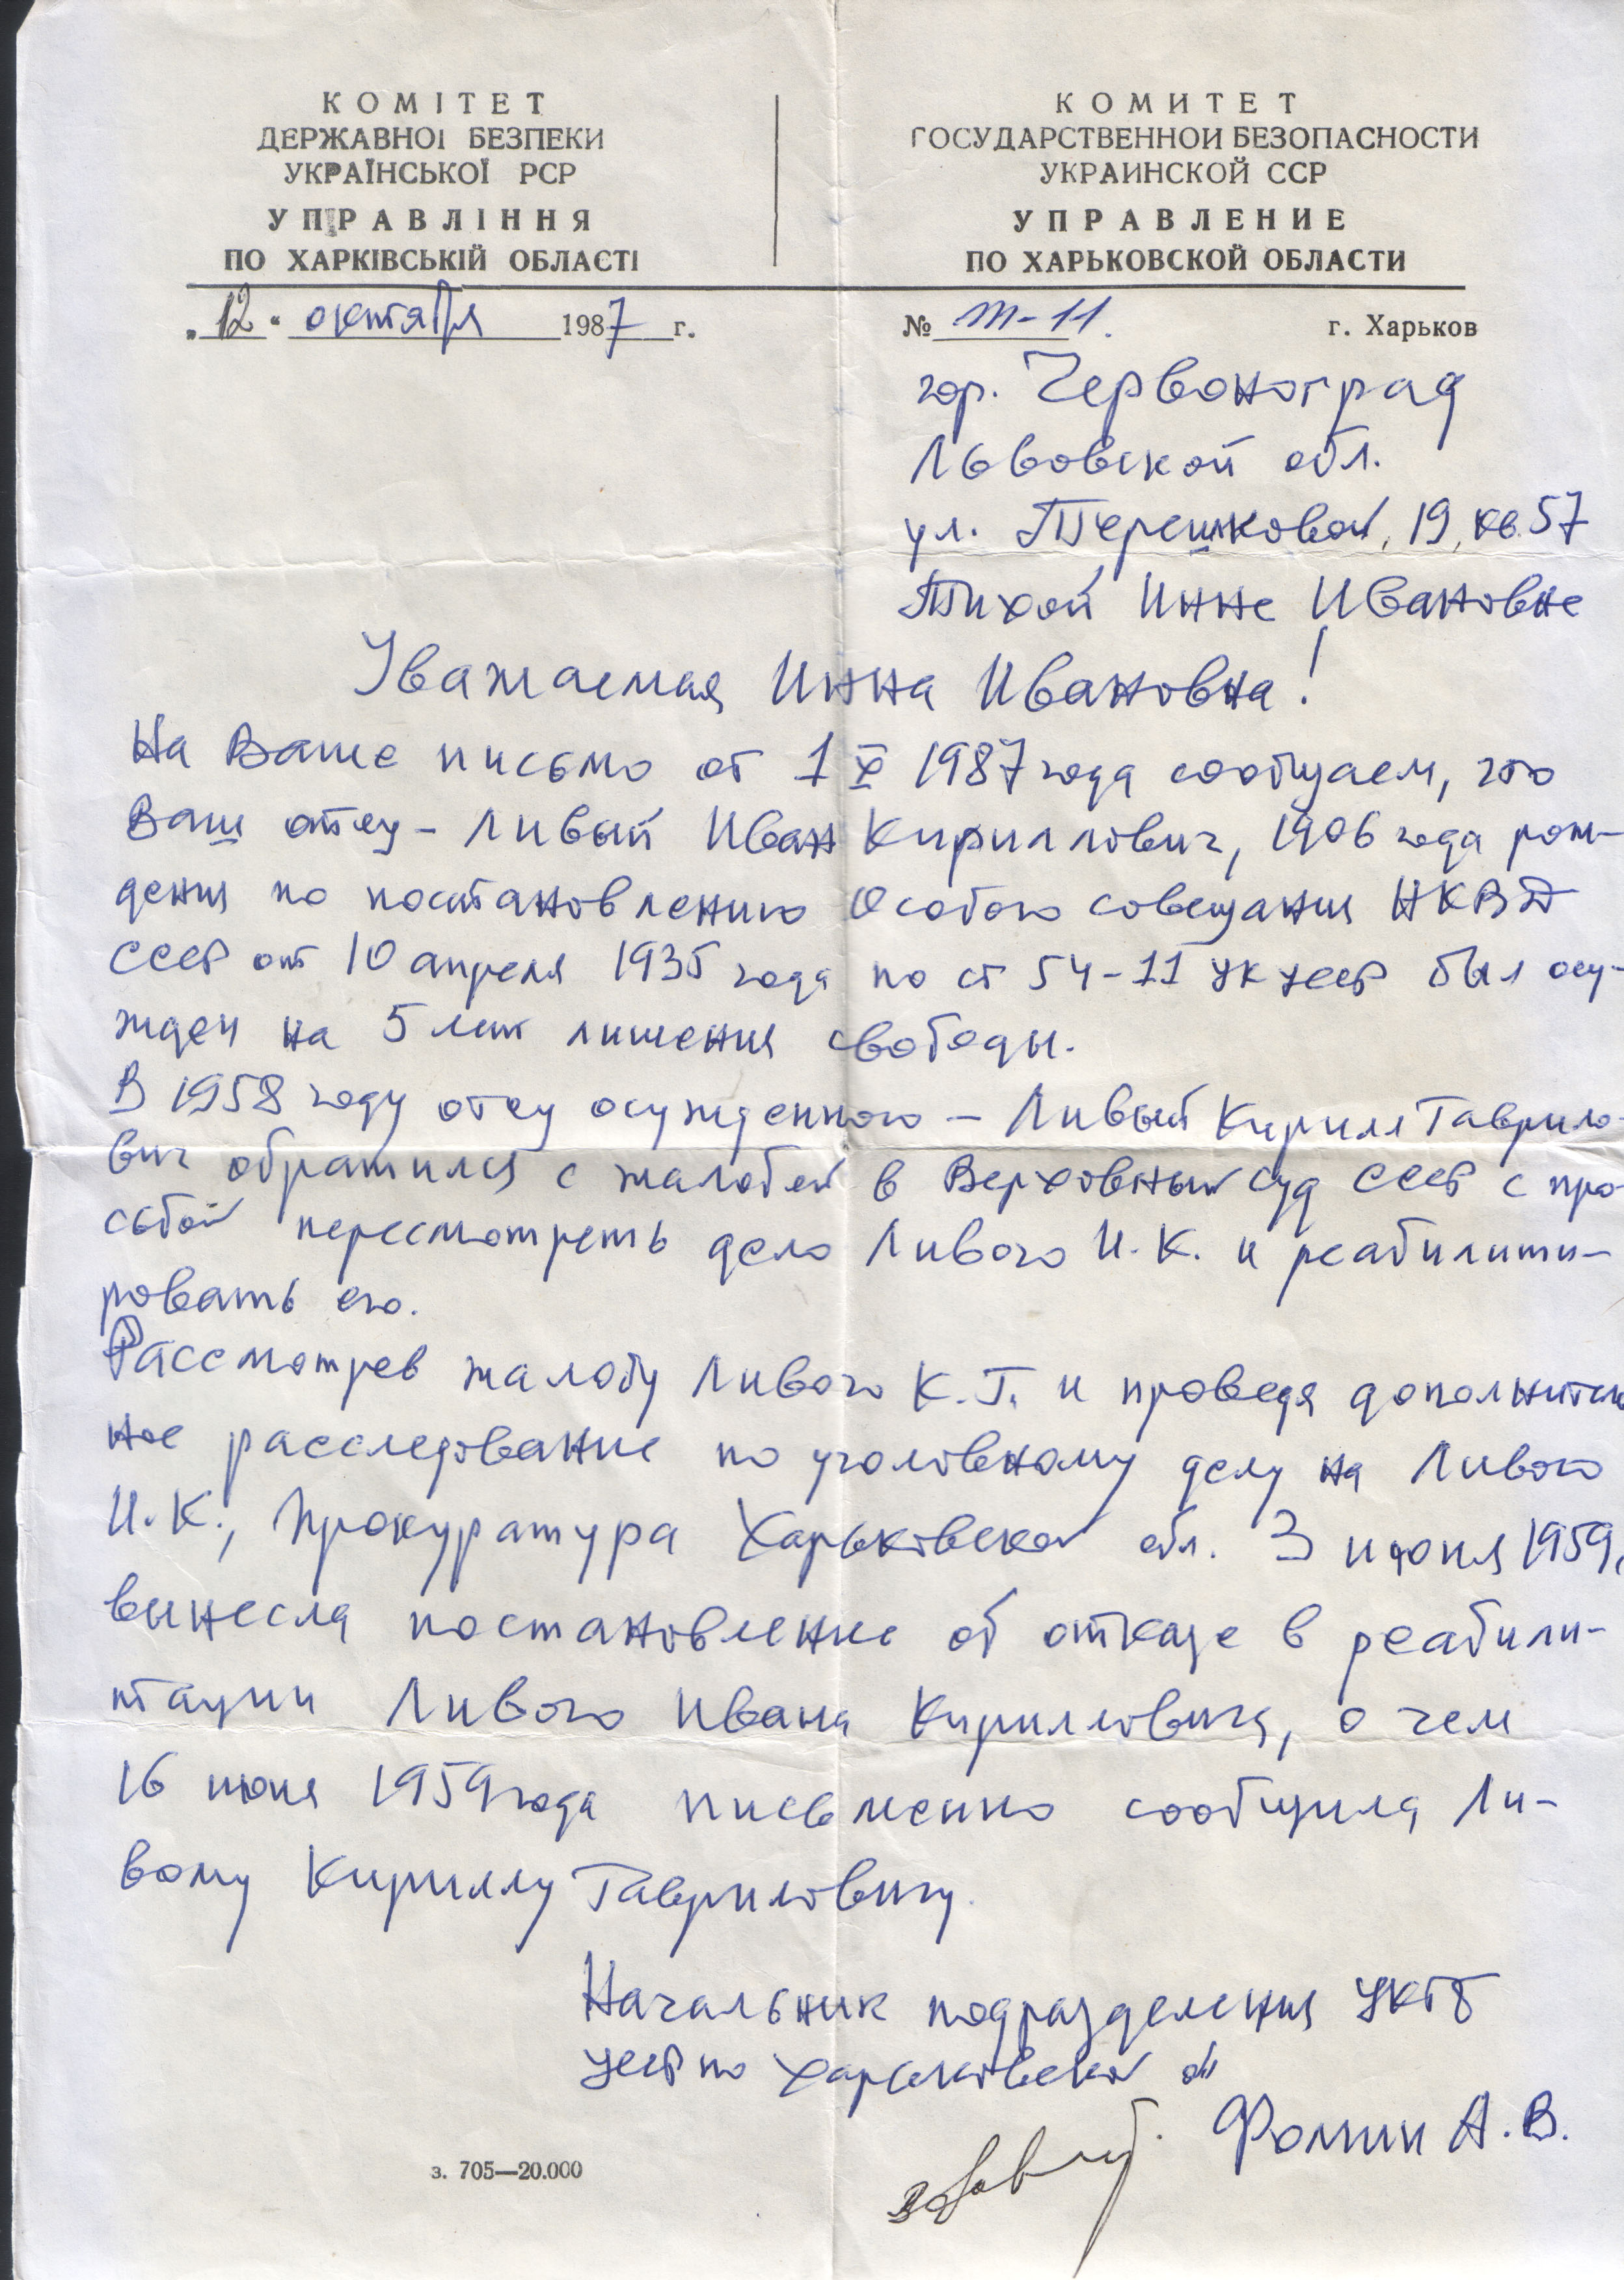 КОМІТЕТ
ДЕРЖАВНОІ БЕЗПЕКИ
УКРАЇНСЬКОЇ РСР
УПРАВЛІННЯ
ПО ХАРКІВСЬКІЙ ОБЛАЄТІ
КОМИТЕТ
ГОСУДАРСТВЕННОИ БЕЗОПАСНОСТИ
УКРАИНСКОЙ ССР
УПРАВЛЕНИЕ
ПО ХАРЬКОВСКОЙ ОБЛАСТИ
„12“ октября 1987 г.
№ Т-11. г. Харьков
гор. Червоноград
Львовской обл.
ул. Терешковой, 19, кв. 57
Тихой Инне Ивановне
Уважаемая Инна Ивановна!
На Ваше письмо от 1 X 1987 года сообщаем, что
Ваш отец - Ливый Иван Кириллович, 1906 года рож-
дения по постановлению Особого совещания НКВД
СССР от 10 апреля 1935 года по ст 54-11 УК УССР был осу-
жден на 5 лет лишения свободы.
В 1958 году отец осужденного - Ливый Кирилл Гаврило-
вич обратился с жалобой в Верховный суд СССР с про-
сьбой пересмотреть дело Ливого И.К. и реабилити-
ровать его.
Рассмотрев жалобу Ливого К.Г. и проведя дополнитель
ное расследование по уголовному делу на Ливого
И.К., Прокуратура Харьковской обл. 3 июня 1959г
вынесла постановление об отказе в реабили-
тации Ливого Ивана Кирилловича, о чем
16 июня 1959 года письменно сообщила Ли-
вому Кириллу Гавриловичу.
Начальник подразделения УКГБ
УССР по Харьковской обл
Фомин А.В.
з. 705—20.000